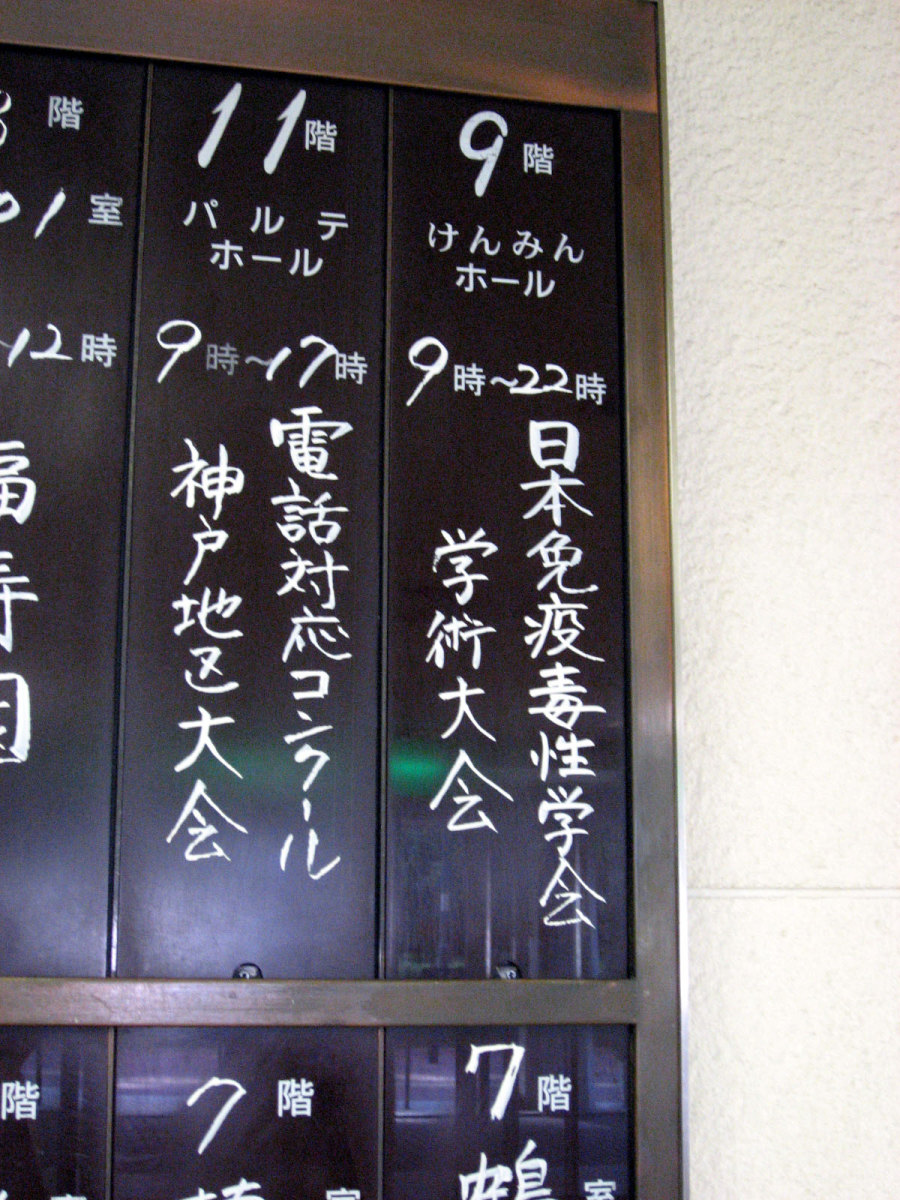 9階
けんみん
ホール
9時~22時
日本免疫毒性学会
学術大会
11階
パルテ
ホール
9時~17時
電話対応コンクール
神戸地区大会
階
01室
12時
福寿園
7階
鶴
室
7階
室
階